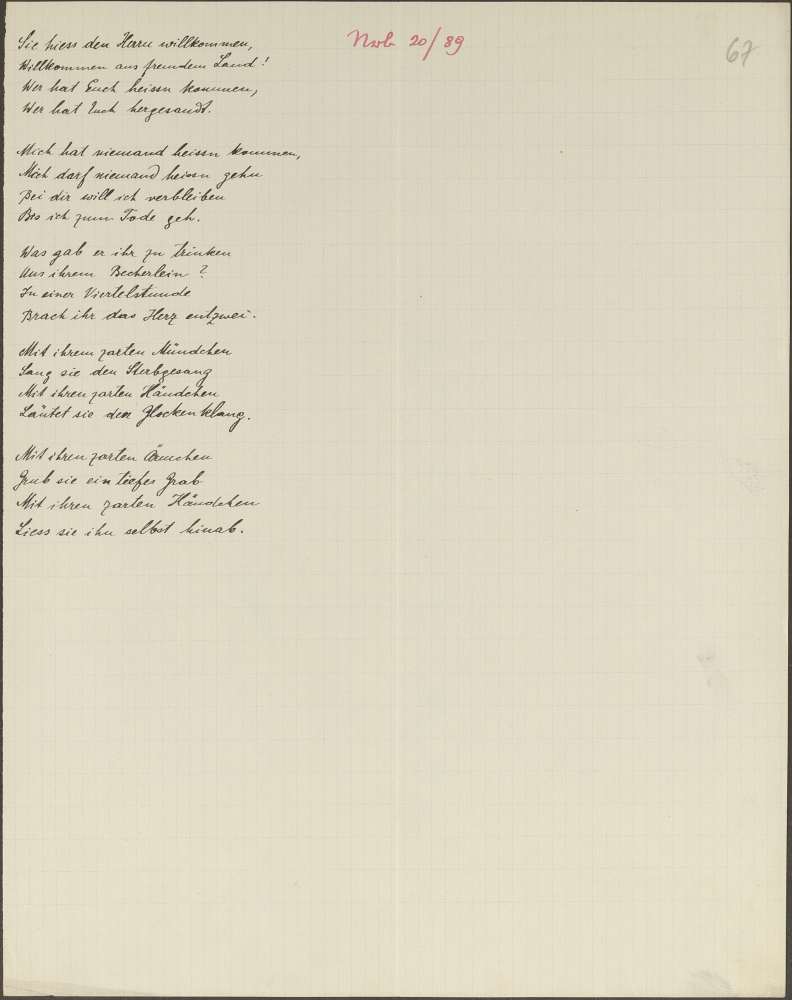 Nrb 20/89
67
Sie hiess den Herrn willkommen,
Willkommen aus fremdem Land!
Wer hat Euch heissn kommen,
Wer hat Euch hergesandt.
Mich hat niemand heissn kommen,
Mich darf niemand heissn gehn
Bei dir will ich verbleiben
Bis ich zum Tode geh.
Was gab er ihr zu trinken
Aus ihrem Becherlein?
In einer Viertelstunde
Brach ihr das Herz entzwei.
Mit ihrem zarten Mündchen
Sang sie den Sterbgesang
Mit ihren zarten Händchen
Läutet sie den Glockenklang.
Mit ihren zarten Ärmchen
Grub sie ein tiefes Grab
Mit ihren zarten Händchen
Liess sie ihn selbst hinab.